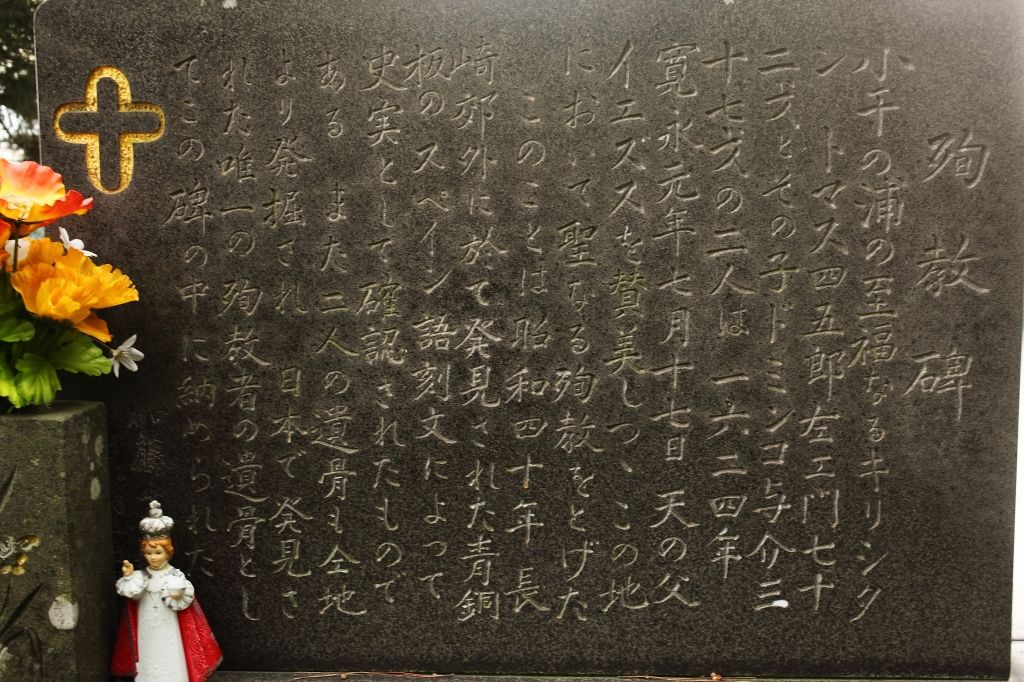 殉教碑
小干の浦の至福なるキリシタ
ントマス四五郎左エ門七十
二才とその子ドミンコ与介三
十七才の二人は一六二四年
寛永元年七月十七日 天の父
イエズスを賛美しつゝこの地
において聖なる殉教をとげた
このことは昭和四十年 長
崎郊外に於て発見された青銅
板のスペイン語刻文によって
史実として確認されたもので
ある また二人の遺骨も全地
より発掘され 日本で発見さ
れた唯一の殉教者の遺骨とし
てこの碑の中に納められた